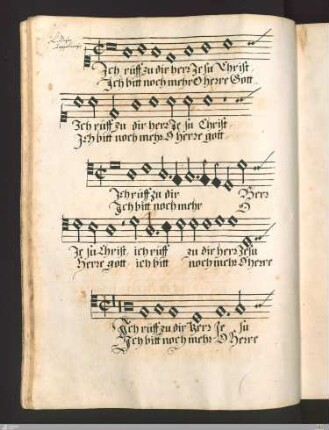 Ich rüff zu dir herr Je su Christ
Ich bitt noch mehr O herre Gott
Ich rüff zu dir herr Je su Christ
Ich bitt noch mehr O herre gott
Ich rüff zu dir Herr
Ich bitt noch mehr O
Je su Christ ich rüff zu dir herr Jesu
Herre gott ich bitt noch mehr O herre
Ich rüff zu dir herr Je su
Ich bitt noch mehr O Herre